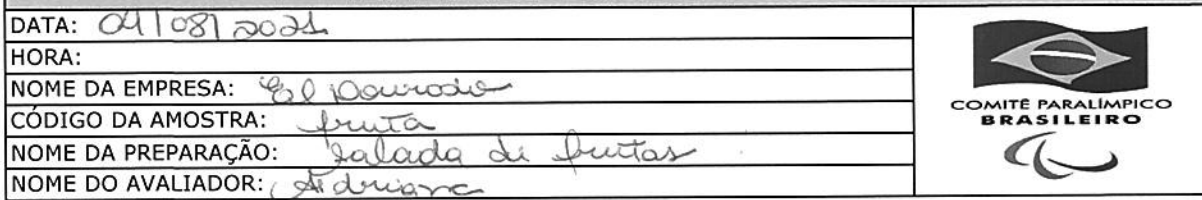 DATA: 04/08/2021
HORA:
NOME DA EMPRESA: El Dourado
CÓDIGO DA AMOSTRA: fruta
NOME DA PREPARAÇÃO: Salada di frutas
NOME DO AVALIADOR: Adriana
COMITÊ PARALÍMPICO
BRASILEIRO